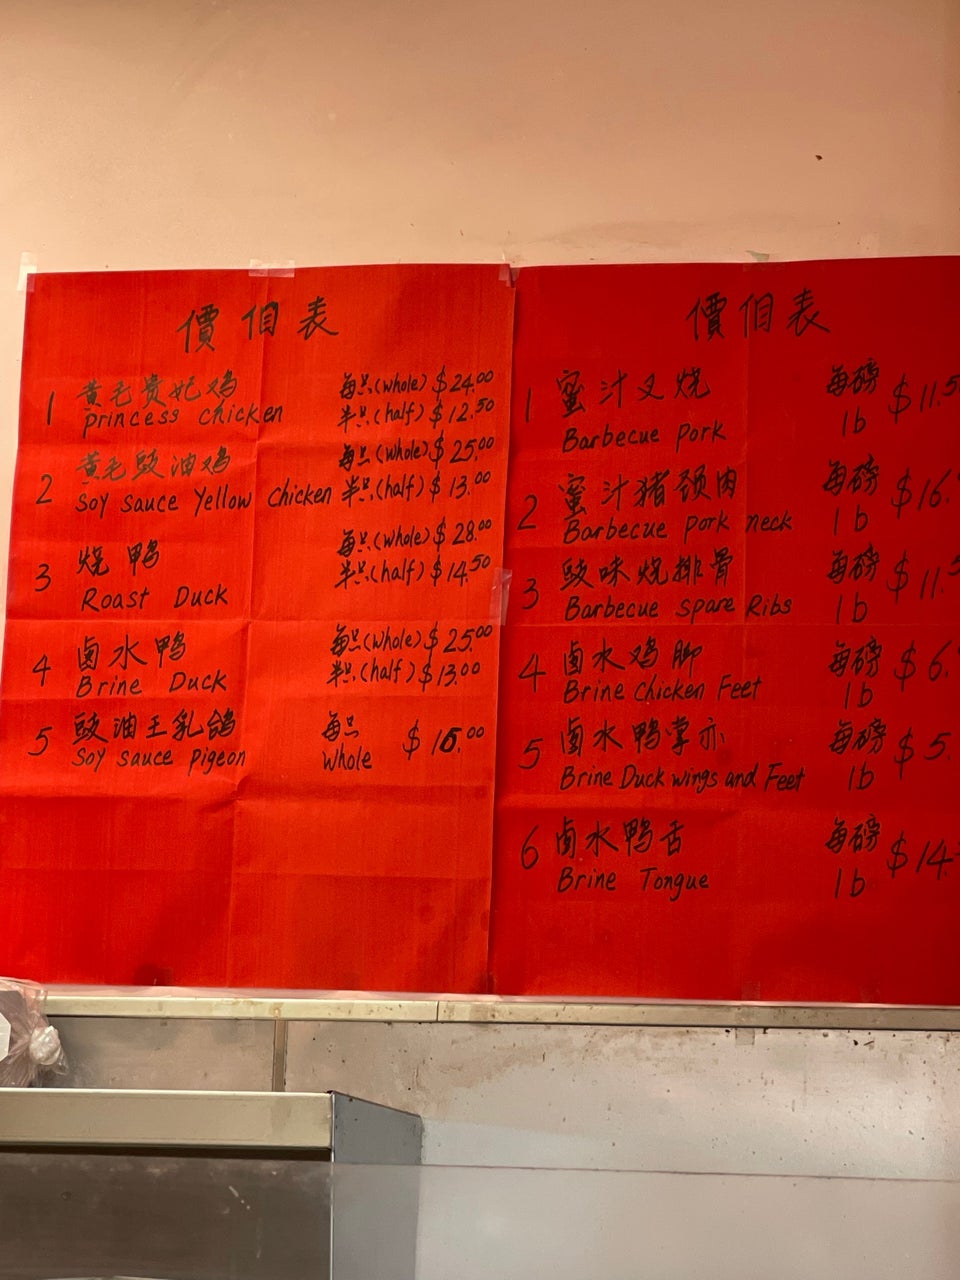 價佀表
1 黄毛贵妃鸡 每只(whole) $24.00
princess chicken 半只(half) $12.50
2 黄毛豉油鸡 每只(whole) $25.00
Soy sauce Yellow chicken 半只(half) $13.00
3 烧鸭 每只(whole) $28.00
Roast Duck 半只(half) $14.50
4 卤水鸭 每只(whole) $25.00
Brine Duck 半只(half) $13.00
5 豉油王乳鸽 每只
Soy sauce pigeon whole $16.00
價佀表
1 蜜汁叉烧 每磅 $11.5
Barbecue pork 1b
2 蜜汁猪颈肉 每磅 $16.
Barbecue pork neck 1b
3 豉味烧排骨 每磅 $11.5
Barbecue spare Ribs 1b
4 卤水鸡脚 每磅 $6.
Brine chicken Feet 1b
5 卤水鸭掌亦 每磅 $5.
Brine Duck wings and Feet 1b
6 卤水鸭舌 每磅 $14.
Brine Tongue 1b